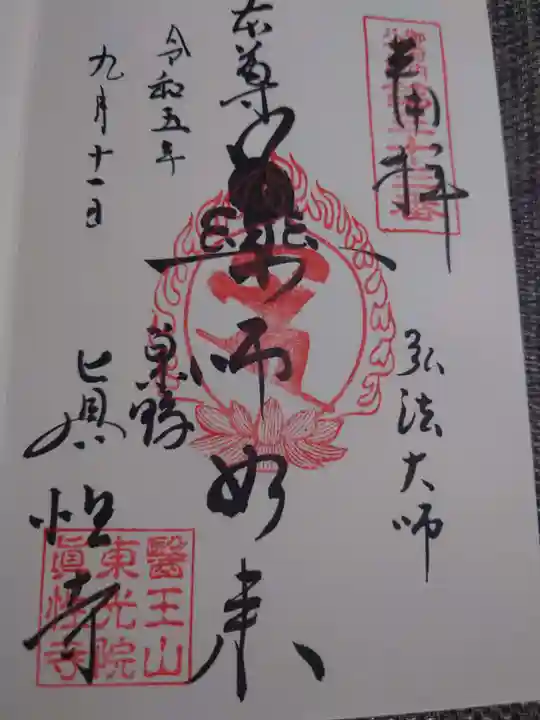 奉拝
弘法大師
本尊
薬師如来
巣鴨
令和五年
九月十一日
眞性寺
醫王山
東光院
眞性寺